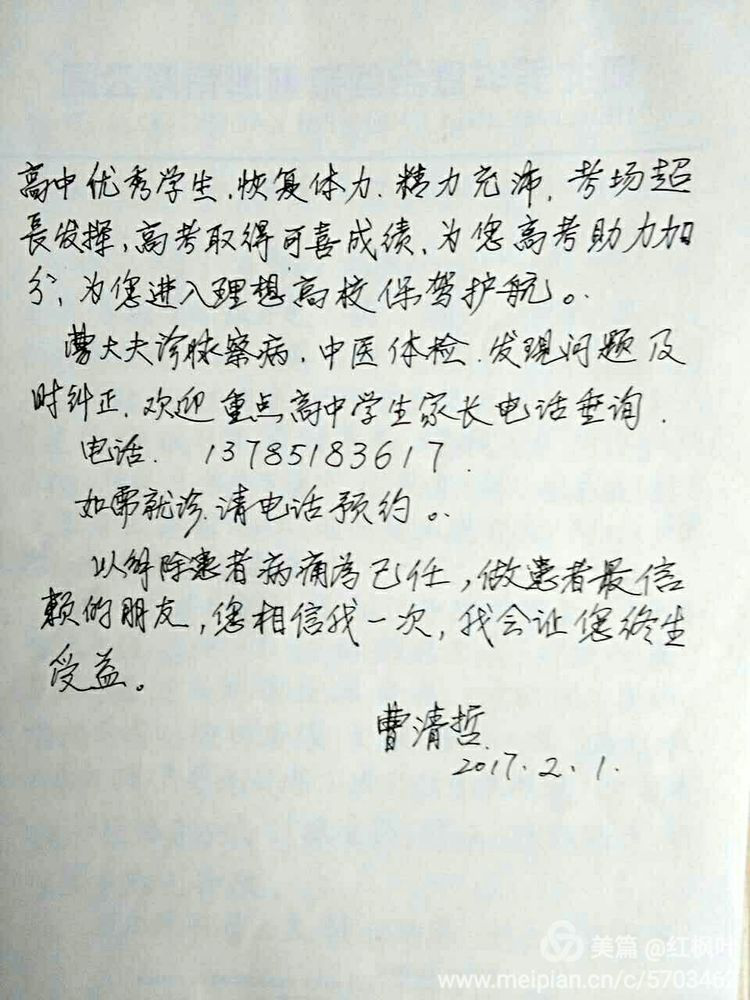 高中优秀学生.恢复体力.精力充沛,考场超
長发挥,高考取得可喜成绩,为您高考助力加
分,为您进入理想高校保驾护航。
曹大夫诊脉察病,中医体检.发现问题及
时纠正.欢迎重点高中学生家长电话垂询.
电话. 13785183617.
如需就诊.请电话预约。
以解除患者病痛为己任,做患者最信
赖的朋友,您相信我一次,我会让您终生
受益。
曹清哲.
2017.2.1.
美篇 @红枫叶
www.meipian.cn/c/5703460